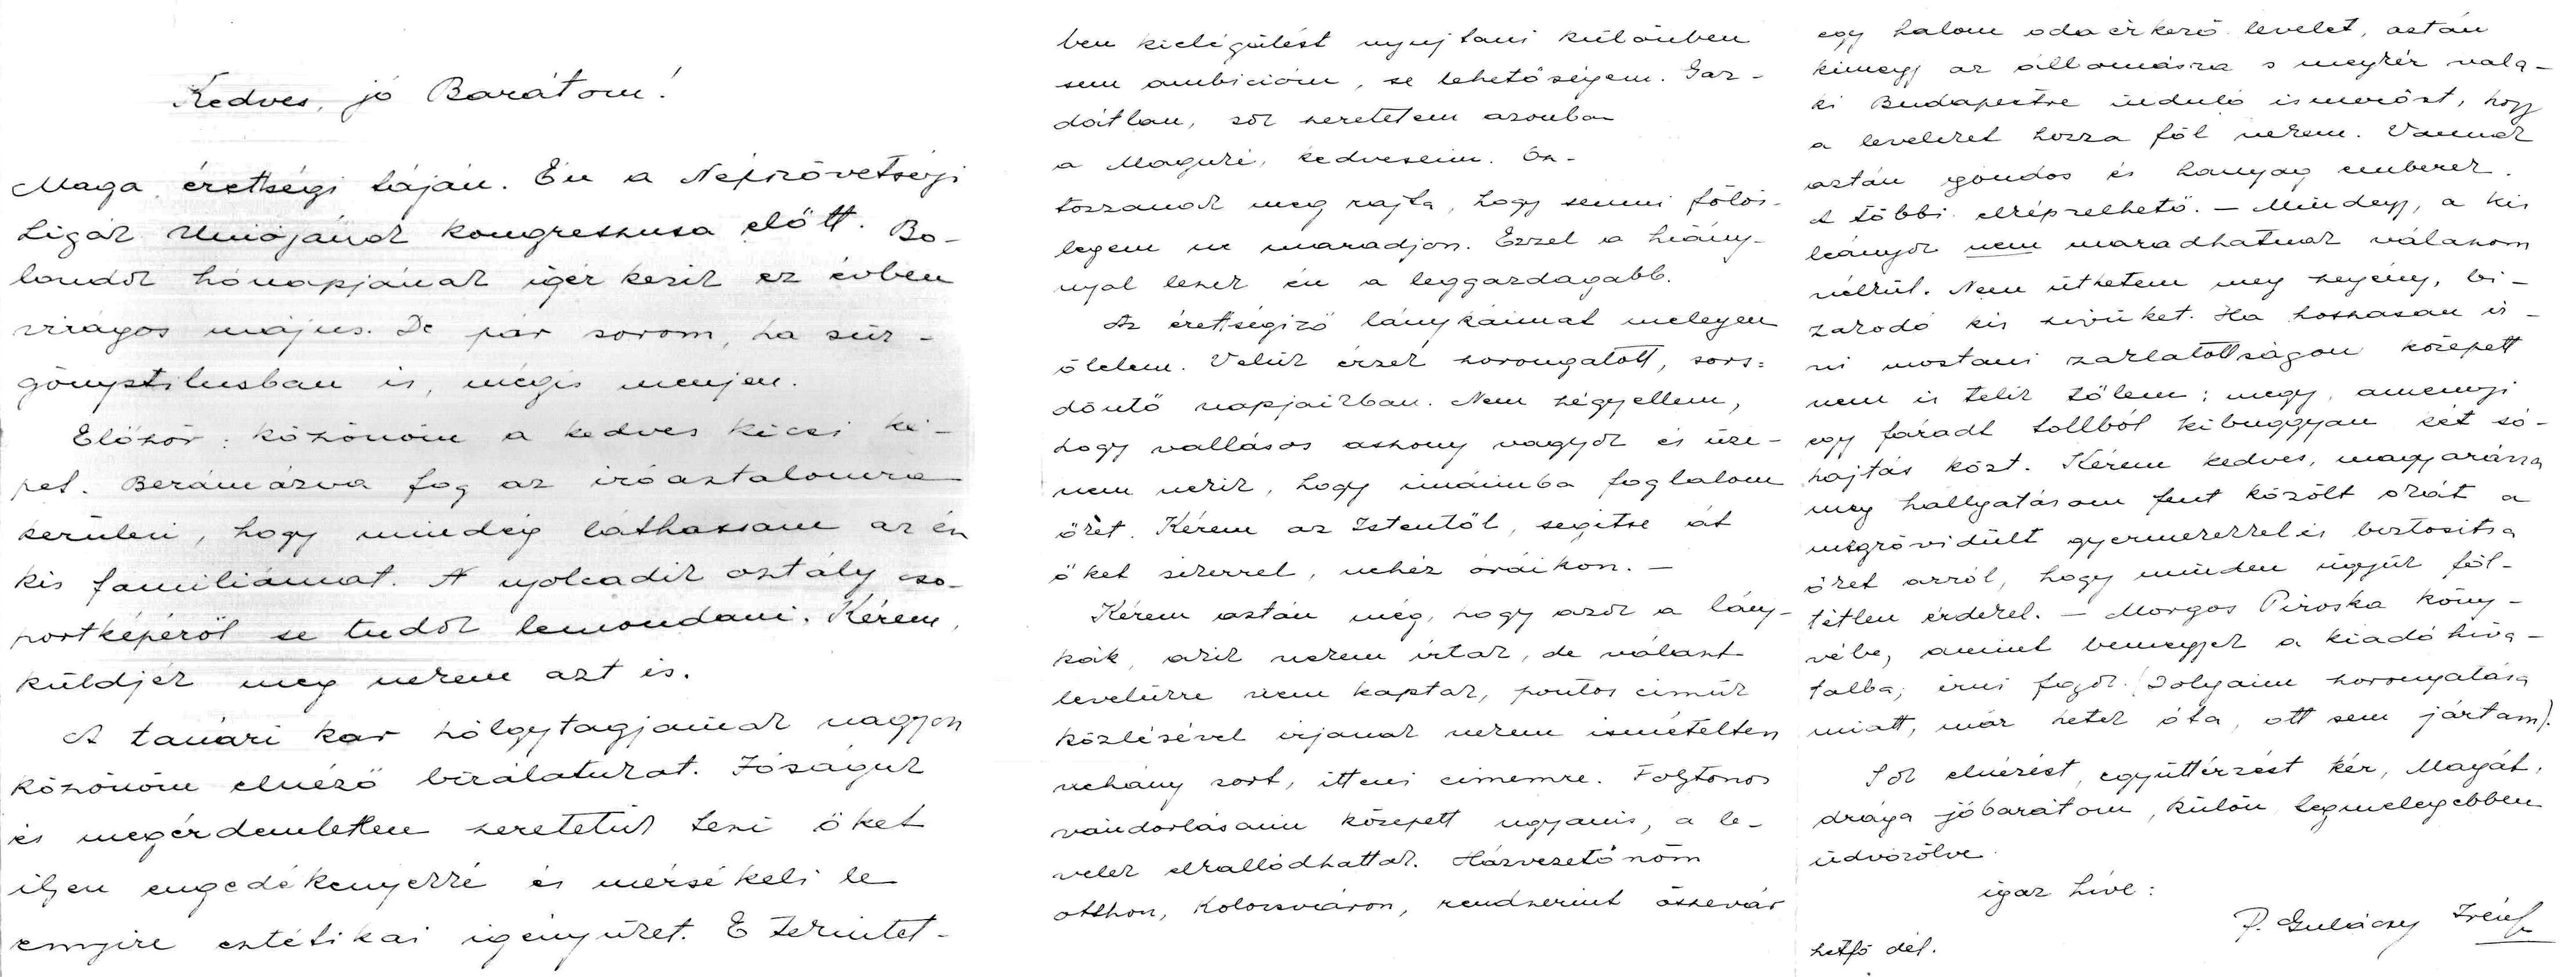 Kedves, jó Barátom!
Maga érettségi táján. Én a Népszövetségi
Ligák Uniójának kongresszusa előtt. Bo-
londok hónapjának igérkezik ez évben
virágos május. De pár sorom, ha sür-
gönystilusban is, mégis menjen.
Először: köszönöm a kedves kicsi ké-
pet. Berámázva fog az iróasztalomra
kerülni, hogy mindég láthassam az én
kis familiámat. A nyolcadik osztály cso-
portképéről se tudok lemondani. Kérem,
küldjék meg nekem azt is.
A tanári kar hölgytagjainak nagyon
köszönöm elnéző birálatukat. Jóságuk
és megérdemletlen szeretetük teszi őket
ilyen engedékenyekké és mérsékeli le
ennyire esztétikai igényüket. E tekintet-
ben kielégülést nyujtani különben
sem ambicióm, se lehetőségem. Gaz-
dátlan, sok szeretetem azonban
a Maguké, kedveseim. Osz-
tozzanak meg rajta, hogy semmi fölös-
legem ne maradjon. Ezzel a hiány-
nyal leszek én a leggazdagabb.
Az érettségiző lánykáimat melegen
ölelem. Velük érzek szorongatott, sors-
döntő napjaikban. Nem szégyellem,
hogy vallásos asszony vagyok és üze-
nem nekik, hogy imáimba foglalom
őket. Kérem az Istentől, segitse át
őket sikerrel, nehéz óráikon. —
Kérem aztán még, hogy azok a lány-
kák, akik nekem irtak, de választ
levelükre nem kaptak, pontos cimük
közlésével irjanak nekem ismételten
néhány sort, itteni cimemre. Folytonos
vándorlásaim közepett ugyanis, a le-
velek elkallódhattak. Házvezetőnőm
otthon, Kolozsváron, rendszerint összevár
egy halom odaérkező levelet, aztán
kimegy az állomásra s megkér vala-
ki Budapestre induló ismerőst, hogy
a leveleket hozza föl nekem. Vannak
aztán gondos és hanyag emberek.
A többi elképzelhető. — Mindegy, a kis
leányok nem maradhatnak válaszom
nélkül. Nem üthetem meg szegény, bi-
zakodó kis szivüket. Ha hosszasan ir-
ni mostani zaklatottságom közepett
nem is telik tőlem: megy, amennyi
egy fáradt tollból kibuggyan két só-
hajtás közt. Kérem kedves, magyarázza
meg hallgatásom fent közölt okát a
megrövidült gyermekekkel és biztositsa
őket arról, hogy minden ügyük föl-
tétlen érdekel. — Morgos Piroska köny-
vébe, amint bemegyek a kiadóhiva-
talba, irni fogok. (Dolgaim szorongatása
miatt, már hetek óta, ott sem jártam).
Sok elnézést, együttérzést kér, Magát,
drága jóbarátom, külön legmelegebben
üdvözölve
igaz hive:
P. Gulácsy Irén
hetfő dél.